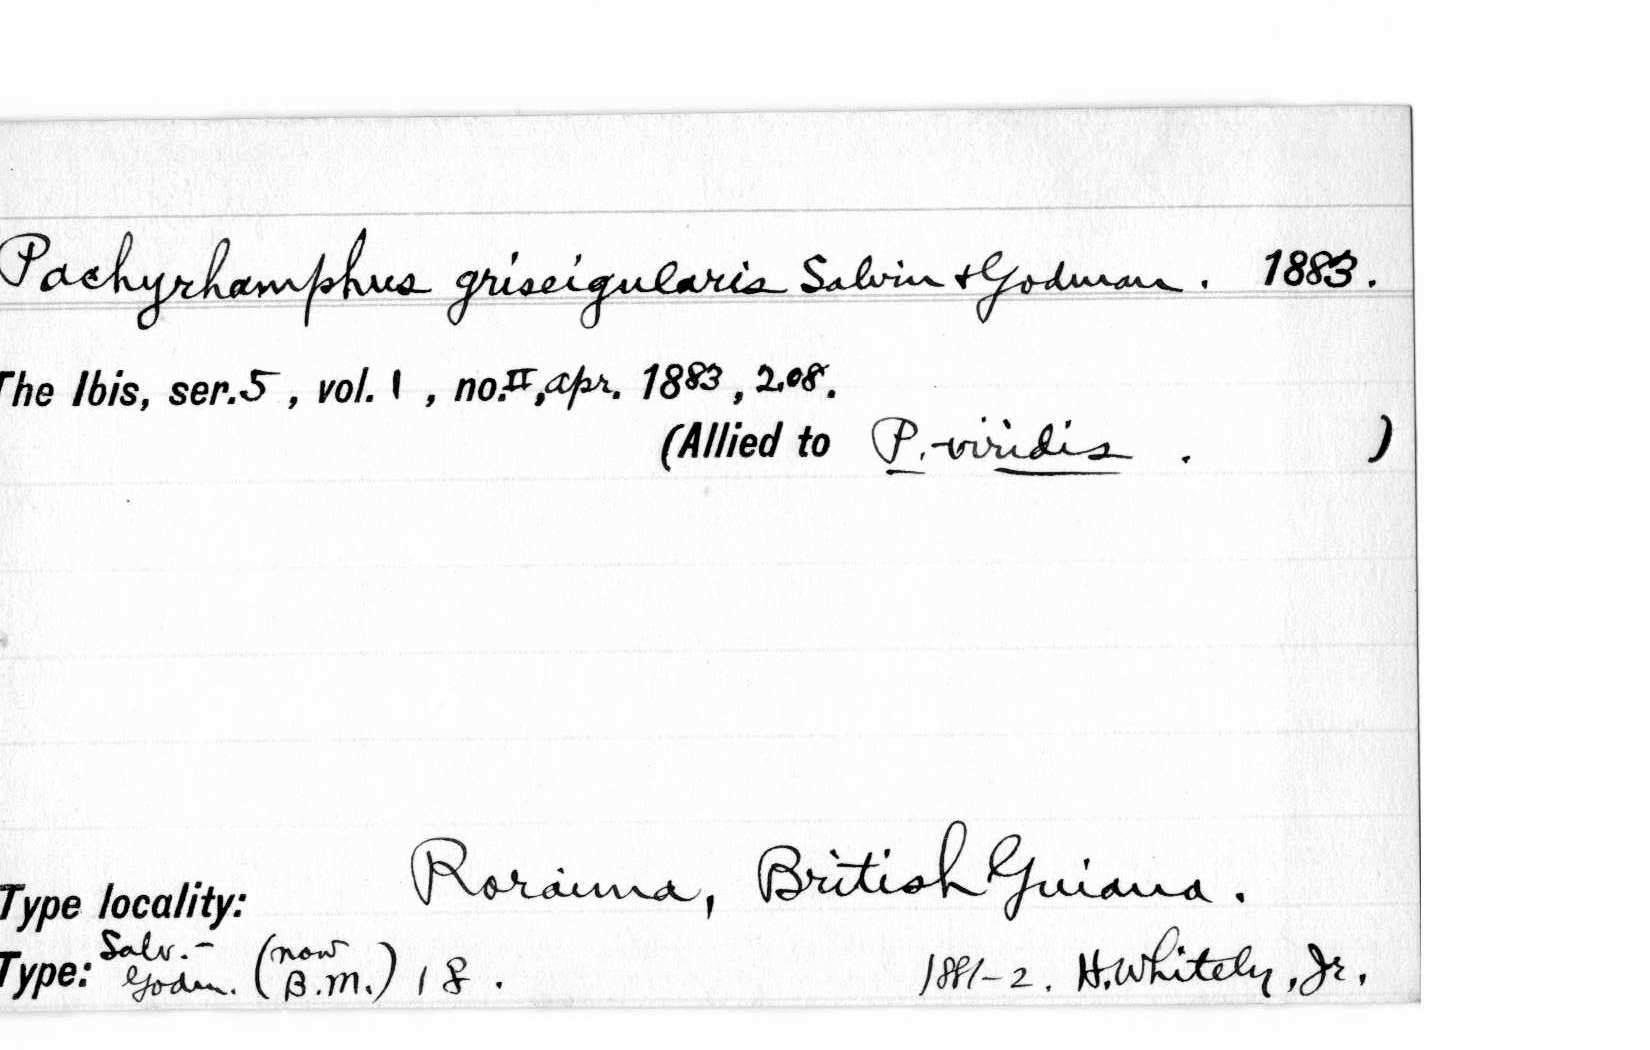 Pachyrhamphus griseigularis Salvin & Godman. 1883.
The Ibis, ser. 5, vol. 1, no. II, Apr. 1883, 208.
(Allied to P. viridis. )
Type locality: Roraima, British Guiana.
Type: Salv.-Godm. (now B.M.) 1 8. 1881-2. H. Whitely, Jr.